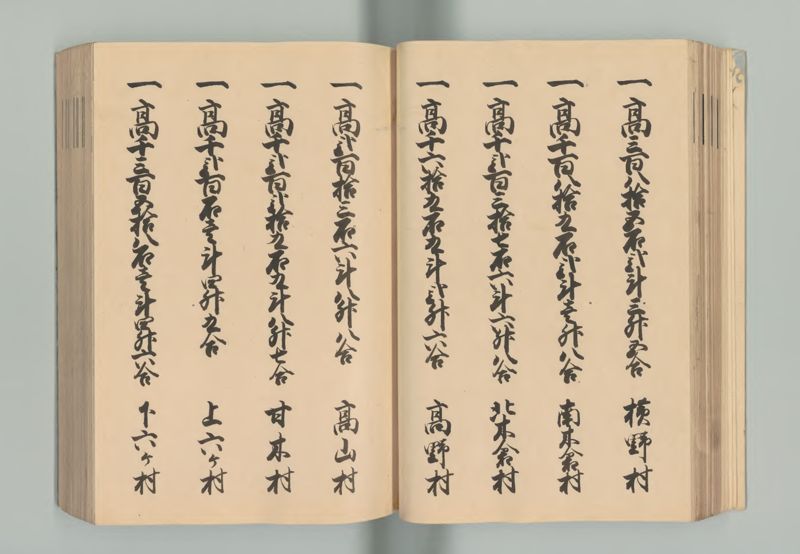 一高三百八拾五石弐斗三升五合 横野村
一高千百八拾九石弐斗壱升八合 南木倉村
一高千弐百三拾七石六斗六升八合 北木倉村
一高千六拾九石九斗弐升六合 高野村
一高弐百拾三石六斗八升八合 高山村
一高千弐百弐拾九石九斗八升七合 甘木村
一高千弐百石壱斗四升九合 上六ケ村
一高千三百五拾八石壱斗四升六合 下六ケ村